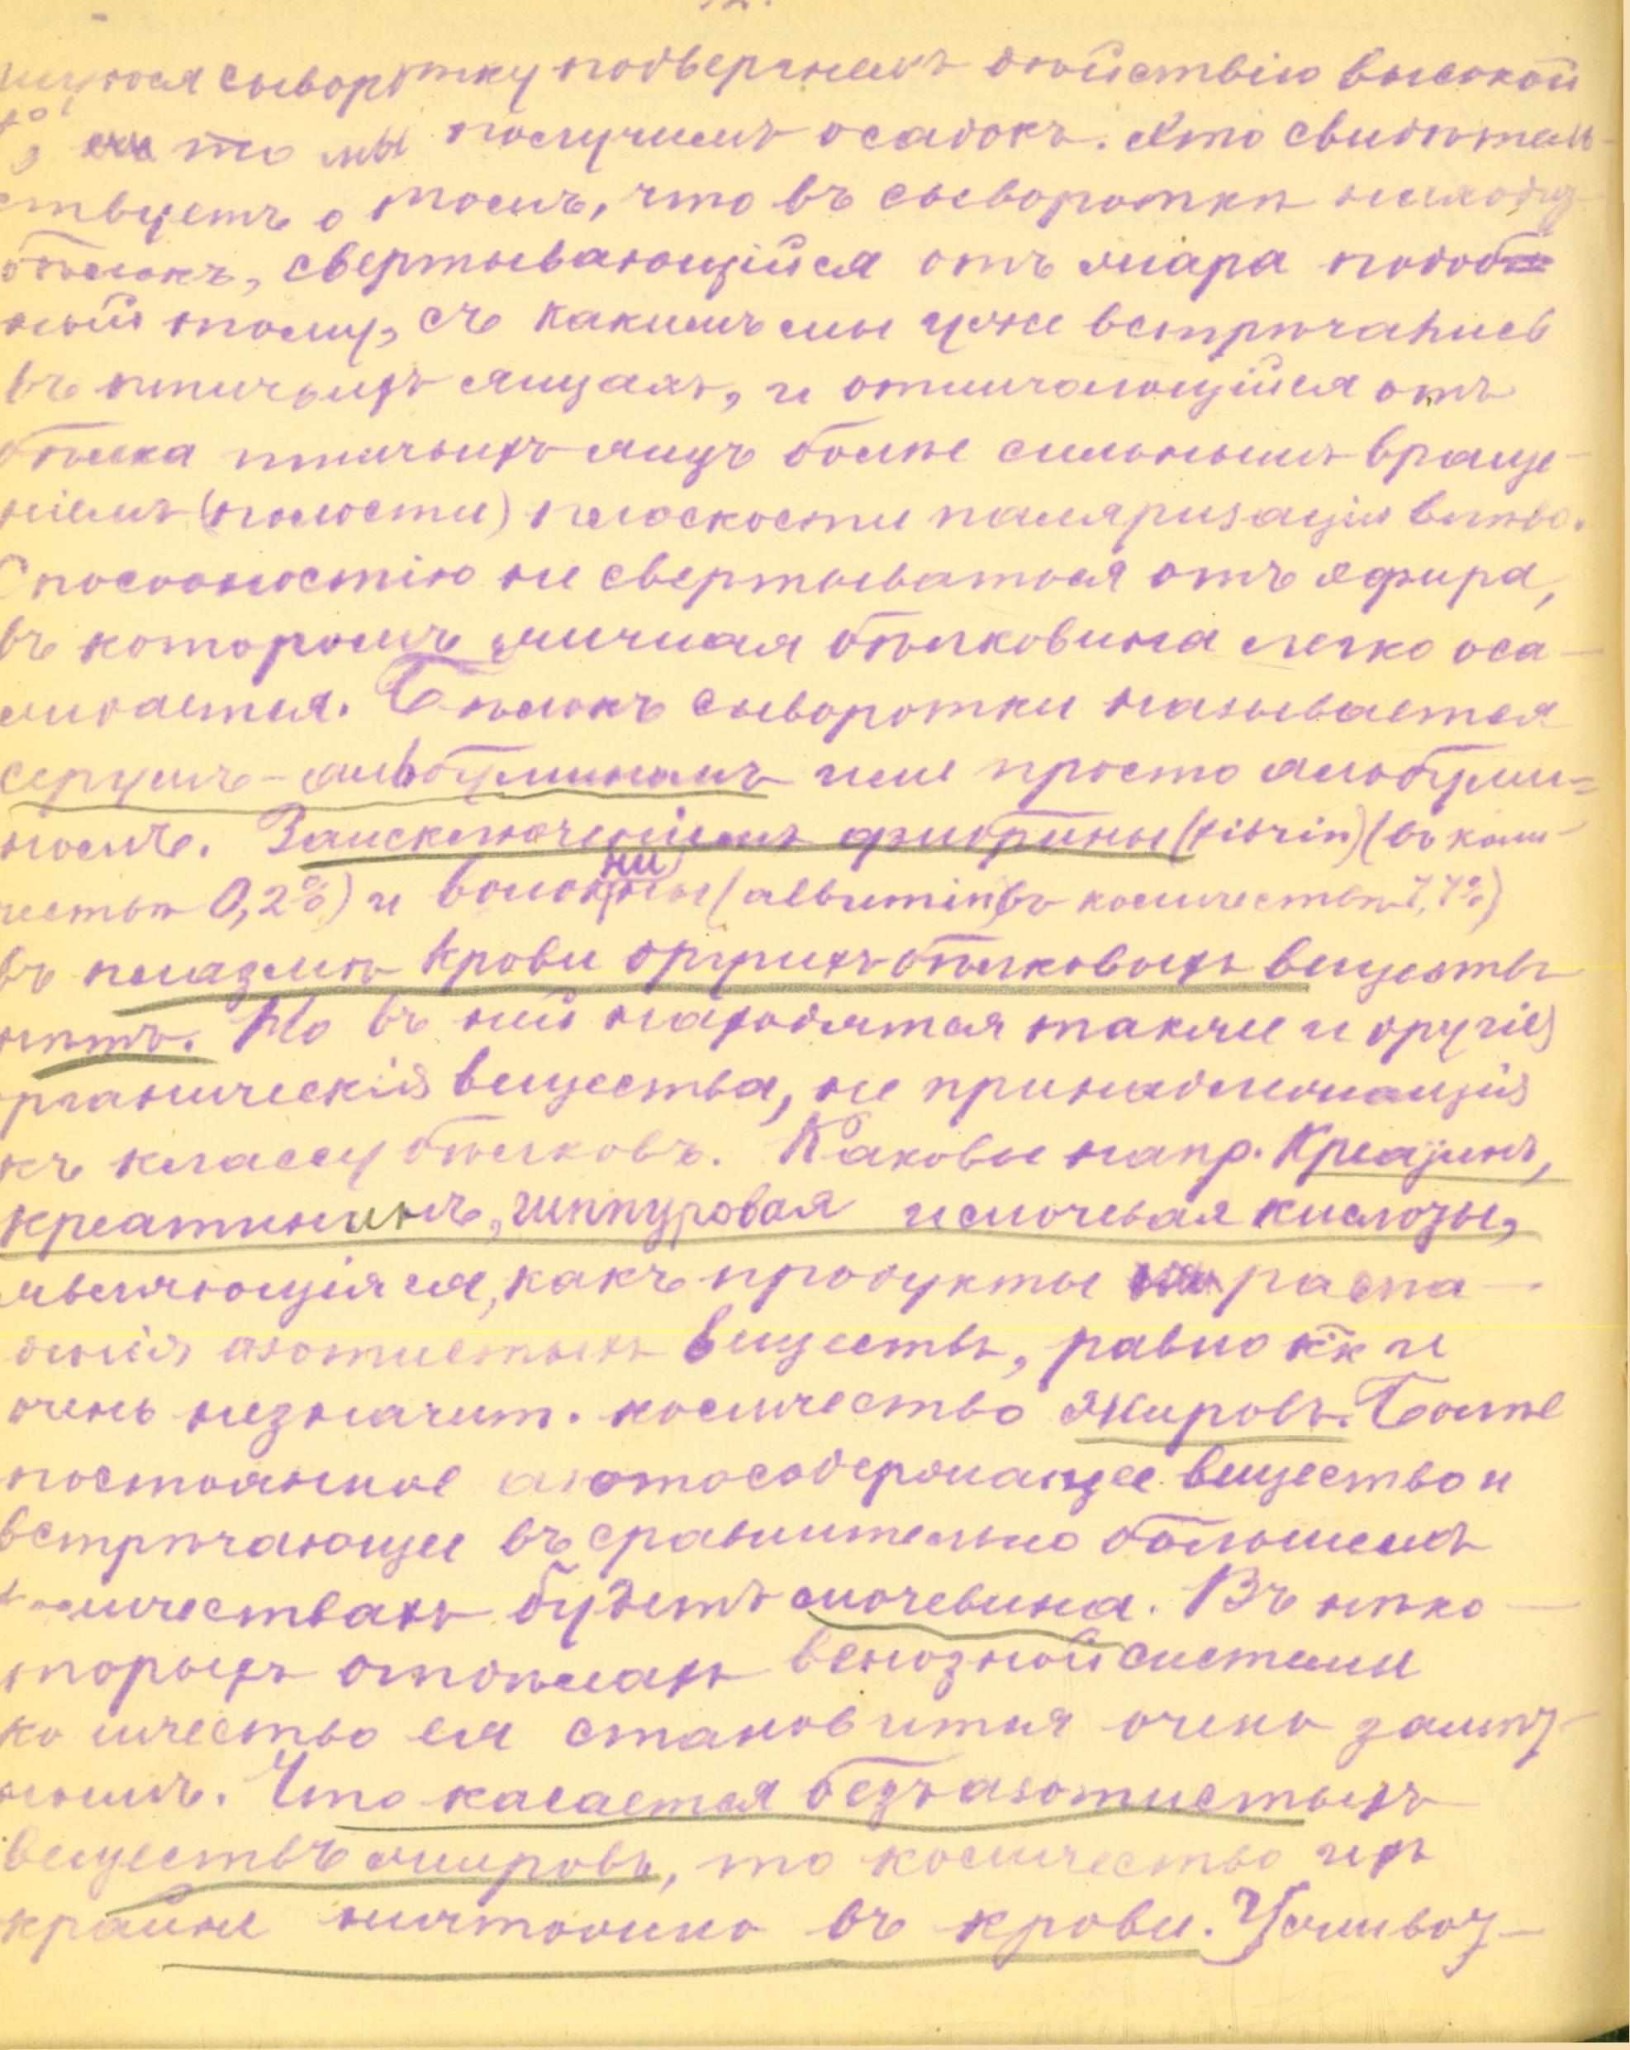 12.
щуюся сыворотку подвергнемъ дѣйствію высокой
t°, то мы получимъ осадокъ. Это свидѣтель-
ствуетъ о томъ, что въ сывороткѣ находиз
бѣлокъ, свертывающійся отъ жара подоб
ный тому, съ какимъ мы уже встрѣчались
въ птичьихъ яицахъ, и отличающійся отъ
бѣлка птичьихъ яицъ болѣе сильнымъ враще-
ніемъ (плости) плоскости паляризаціи влѣво.
Способностію не свертываться отъ эфира,
въ которомъ яичная бѣлковина легко оса-
ждается. Бѣлокъ сыворотки называется
серумъ-альбуминомъ или просто альбуми=
номъ. Заисключеніемъ фибрины (fibrin) (въ коли-
чествѣ 0,2%) и (albumin) въ количествѣ 7,7%)
въ плазмѣ крови другихъ бѣлковыхъ веществъ
нѣтъ. Но въ ней находятся также и другіе
органическія вещества, не принадлежащія
къ классу бѣлковъ. Каковы напр. Креатинъ,
креатининъ, гиппуровая и мочевая кислоты,
являющіяся, какъ продукты распа-
денія азотистыхъ веществъ, равно к̃к и
очень незначит. количество жировъ. Болѣе
постоянное азотосодержащее вещество и
встрѣчающее въ сравнительно большемъ
количествахъ будетъ мочевина. Въ нѣко-
торыхъ отдѣлахъ венозной системы
количество ея становится очень замѣт-
нымъ. Что касается безъазотистыхъ
веществъ жировъ, то количество ихъ
крайне ничтожно въ крови. Усливоз-